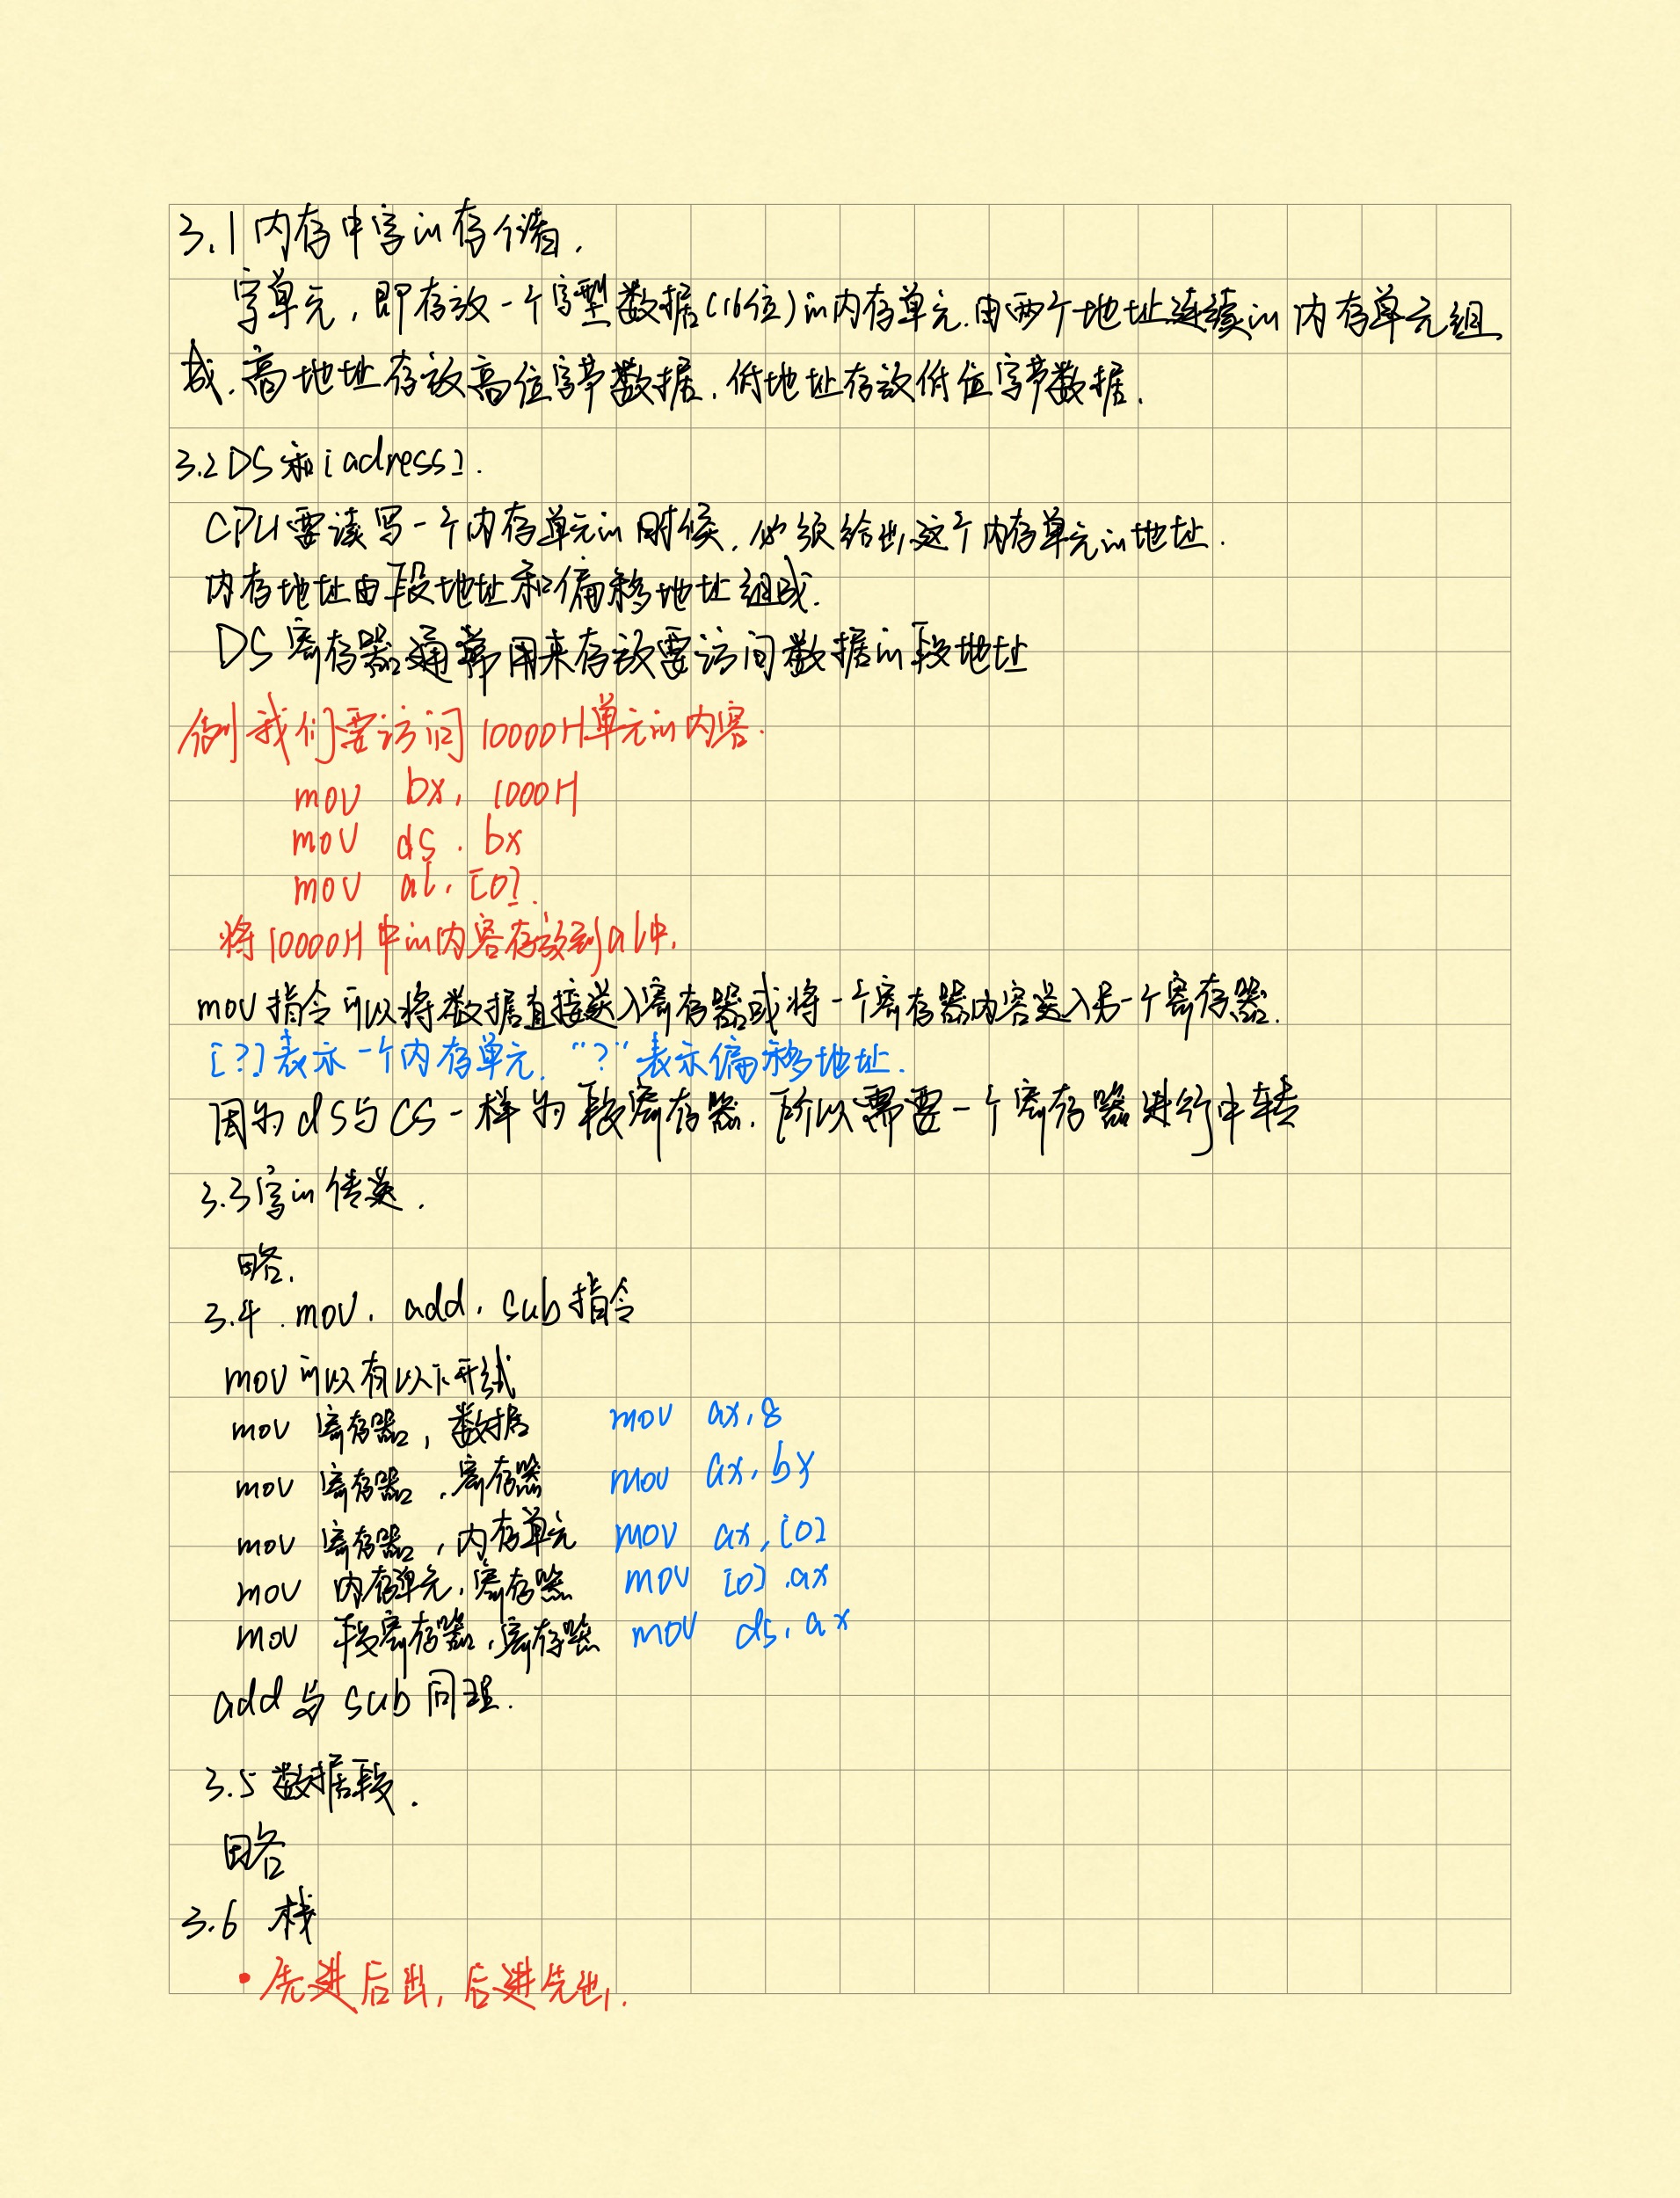 3.1 内存中字的存储.
字单元, 即存放一个字型数据(16位)的内存单元.由两个地址连续的内存单元组
成.高地址存放高位字节数据.低地址存放低位字节数据.
3.2 DS和[adress].
CPU要读写一个内存单元的时候.必须给出这个内存单元的地址.
内存地址由段地址和偏移地址组成.
DS寄存器通常用来存放要访问数据的段地址
例 我们要访问10000H单元的内容.
mov bx, 1000H
mov ds. bx
mov al, [0].
将10000H中的内容存放到al中.
mov指令可以将数据直接送入寄存器或将一个寄存器内容送入另一个寄存器.
[?]表示一个内存单元. "?"表示偏移地址.
因为ds与CS一样为段寄存器.所以需要一个寄存器进行中转
3.3字的传送.
略.
3.4. mov, add, sub指令
mov可以有以下形式
mov 寄存器, 数据 mov ax, 8
mov 寄存器, 寄存器 mov ax, bx
mov 寄存器, 内存单元 mov ax, [0]
mov 内存单元, 寄存器 mov [0] ,ax
mov 段寄存器, 寄存器 mov ds, ax
add与sub同理.
3.5 数据段.
略
3.6 栈
• 先进后出, 后进先出.